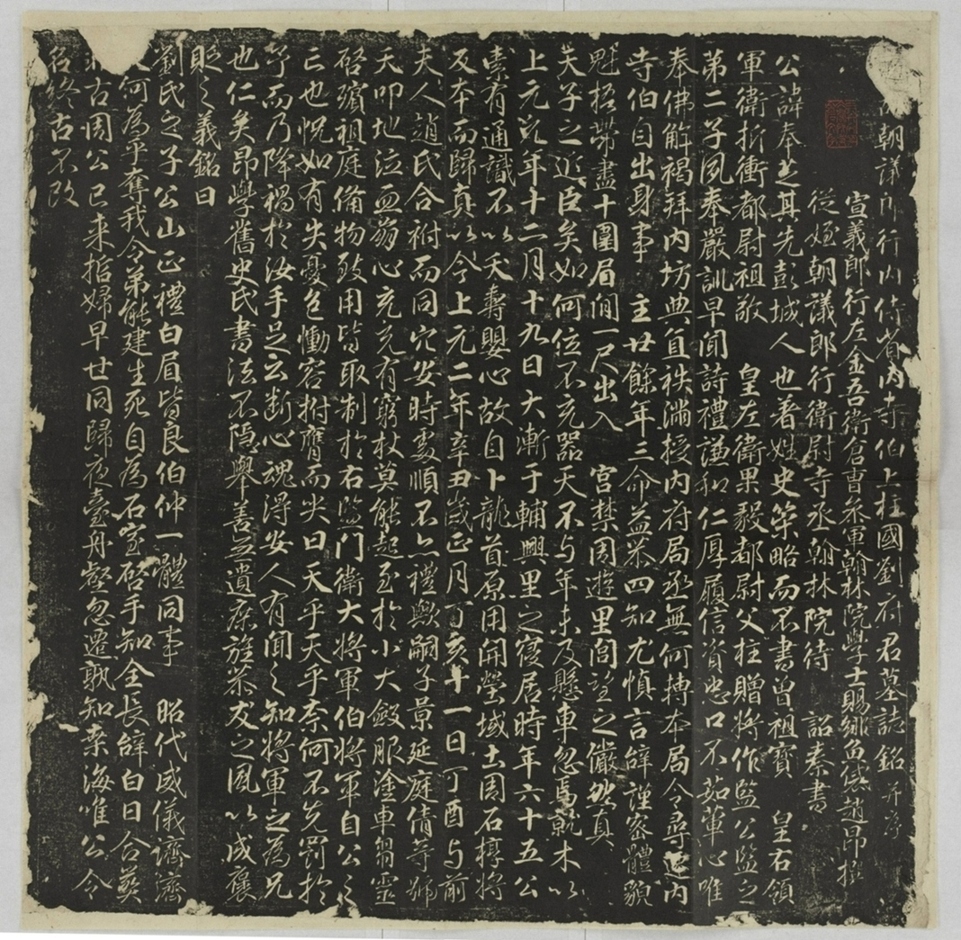 朝議郎行內侍省內寺伯上柱國劉府君墓誌銘并序
宣義郎行左金吾衛倉曹參軍翰林院學士賜緋魚袋趙昂撰
從姪朝議郎行衛尉寺丞翰林院待 詔秦書
公諱奉芝其先彭城人也著姓史策略而不書曾祖寶 皇右領
軍衛折衝都尉祖敬 皇左衛果毅都尉父柱贈將作監公監之
第二子夙奉嚴訓早聞詩禮謙和仁厚履信資忠口不茹葷心唯
奉佛解褐拜內坊典直秩滿授內府局丞無何轉本局令尋遷內
寺伯自出身事 主廿餘年三命益恭四知尤慎言辭謹密體貌
魁梧帶盡十圍眉間一尺出入 宮禁周遊里閭望之儼然真
夫子之近臣矣如何位不充器天不与年未及懸車忽焉就木以
上元元年十二月十九日大漸于輔興里之寢居時年六十五公
素有通識不以夭壽嬰心故自卜龍首原用開塋域土周石槨將
及本而歸真以今上元二年辛丑歲正月丁亥十一日丁酉与前
夫人趙氏合祔而同穴安時處順不亦禮歟嗣子景延庭倩等號
天叩地泣血崩心充充有窮杖莫能起至於小大斂服塗車芻靈
啓殯祖庭備物致用皆取制於右監門衛大將軍伯將軍自公之
亡也怳如有失憂色慟容拊膺而哭曰天乎天乎奈何不先罰於
予而乃降禍於汝手足云斷心魂得安人有聞之知將軍之為兄
也仁矣昂學舊史氏書法不隱舉善無遺庶旌恭友之風以成襃
貶之義銘曰
劉氏之子公山正禮白眉皆良伯仲一體同事 昭代威儀濟濟
何為乎奪我令弟能建生死自為石室啓手知全長辭白日合葬
古周公已來梧婦早世同歸夜臺舟壑忽遷孰知桑海唯公令
名終古不改